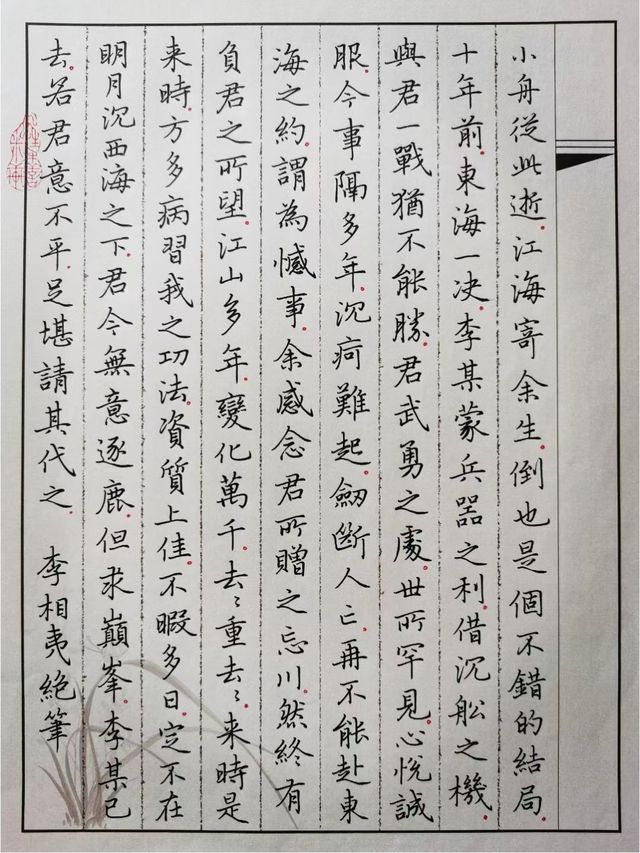 小舟從此逝。江海寄余生。倒也是個不錯的結局。
十年前。東海一决。李某蒙兵器之利。借沉舩之機。
與君一戰猶不能勝。君武勇之處。世所罕見。心悅誠
服。今事隔多年。沉疴難起。劒斷人亡。再不能赴東
海之約。謂為憾事。余感念君所贈之忘川。然終有
負君之所望。江山多年。變化萬千。去〻重去〻。来時是
来時。方多病習我之功法。資質上佳。不暇多日。定不在
明月沉西海之下。君今無意逐鹿。但求巔峯。李某已
去。若君意不平。足堪請其代之。 李相夷絕筆